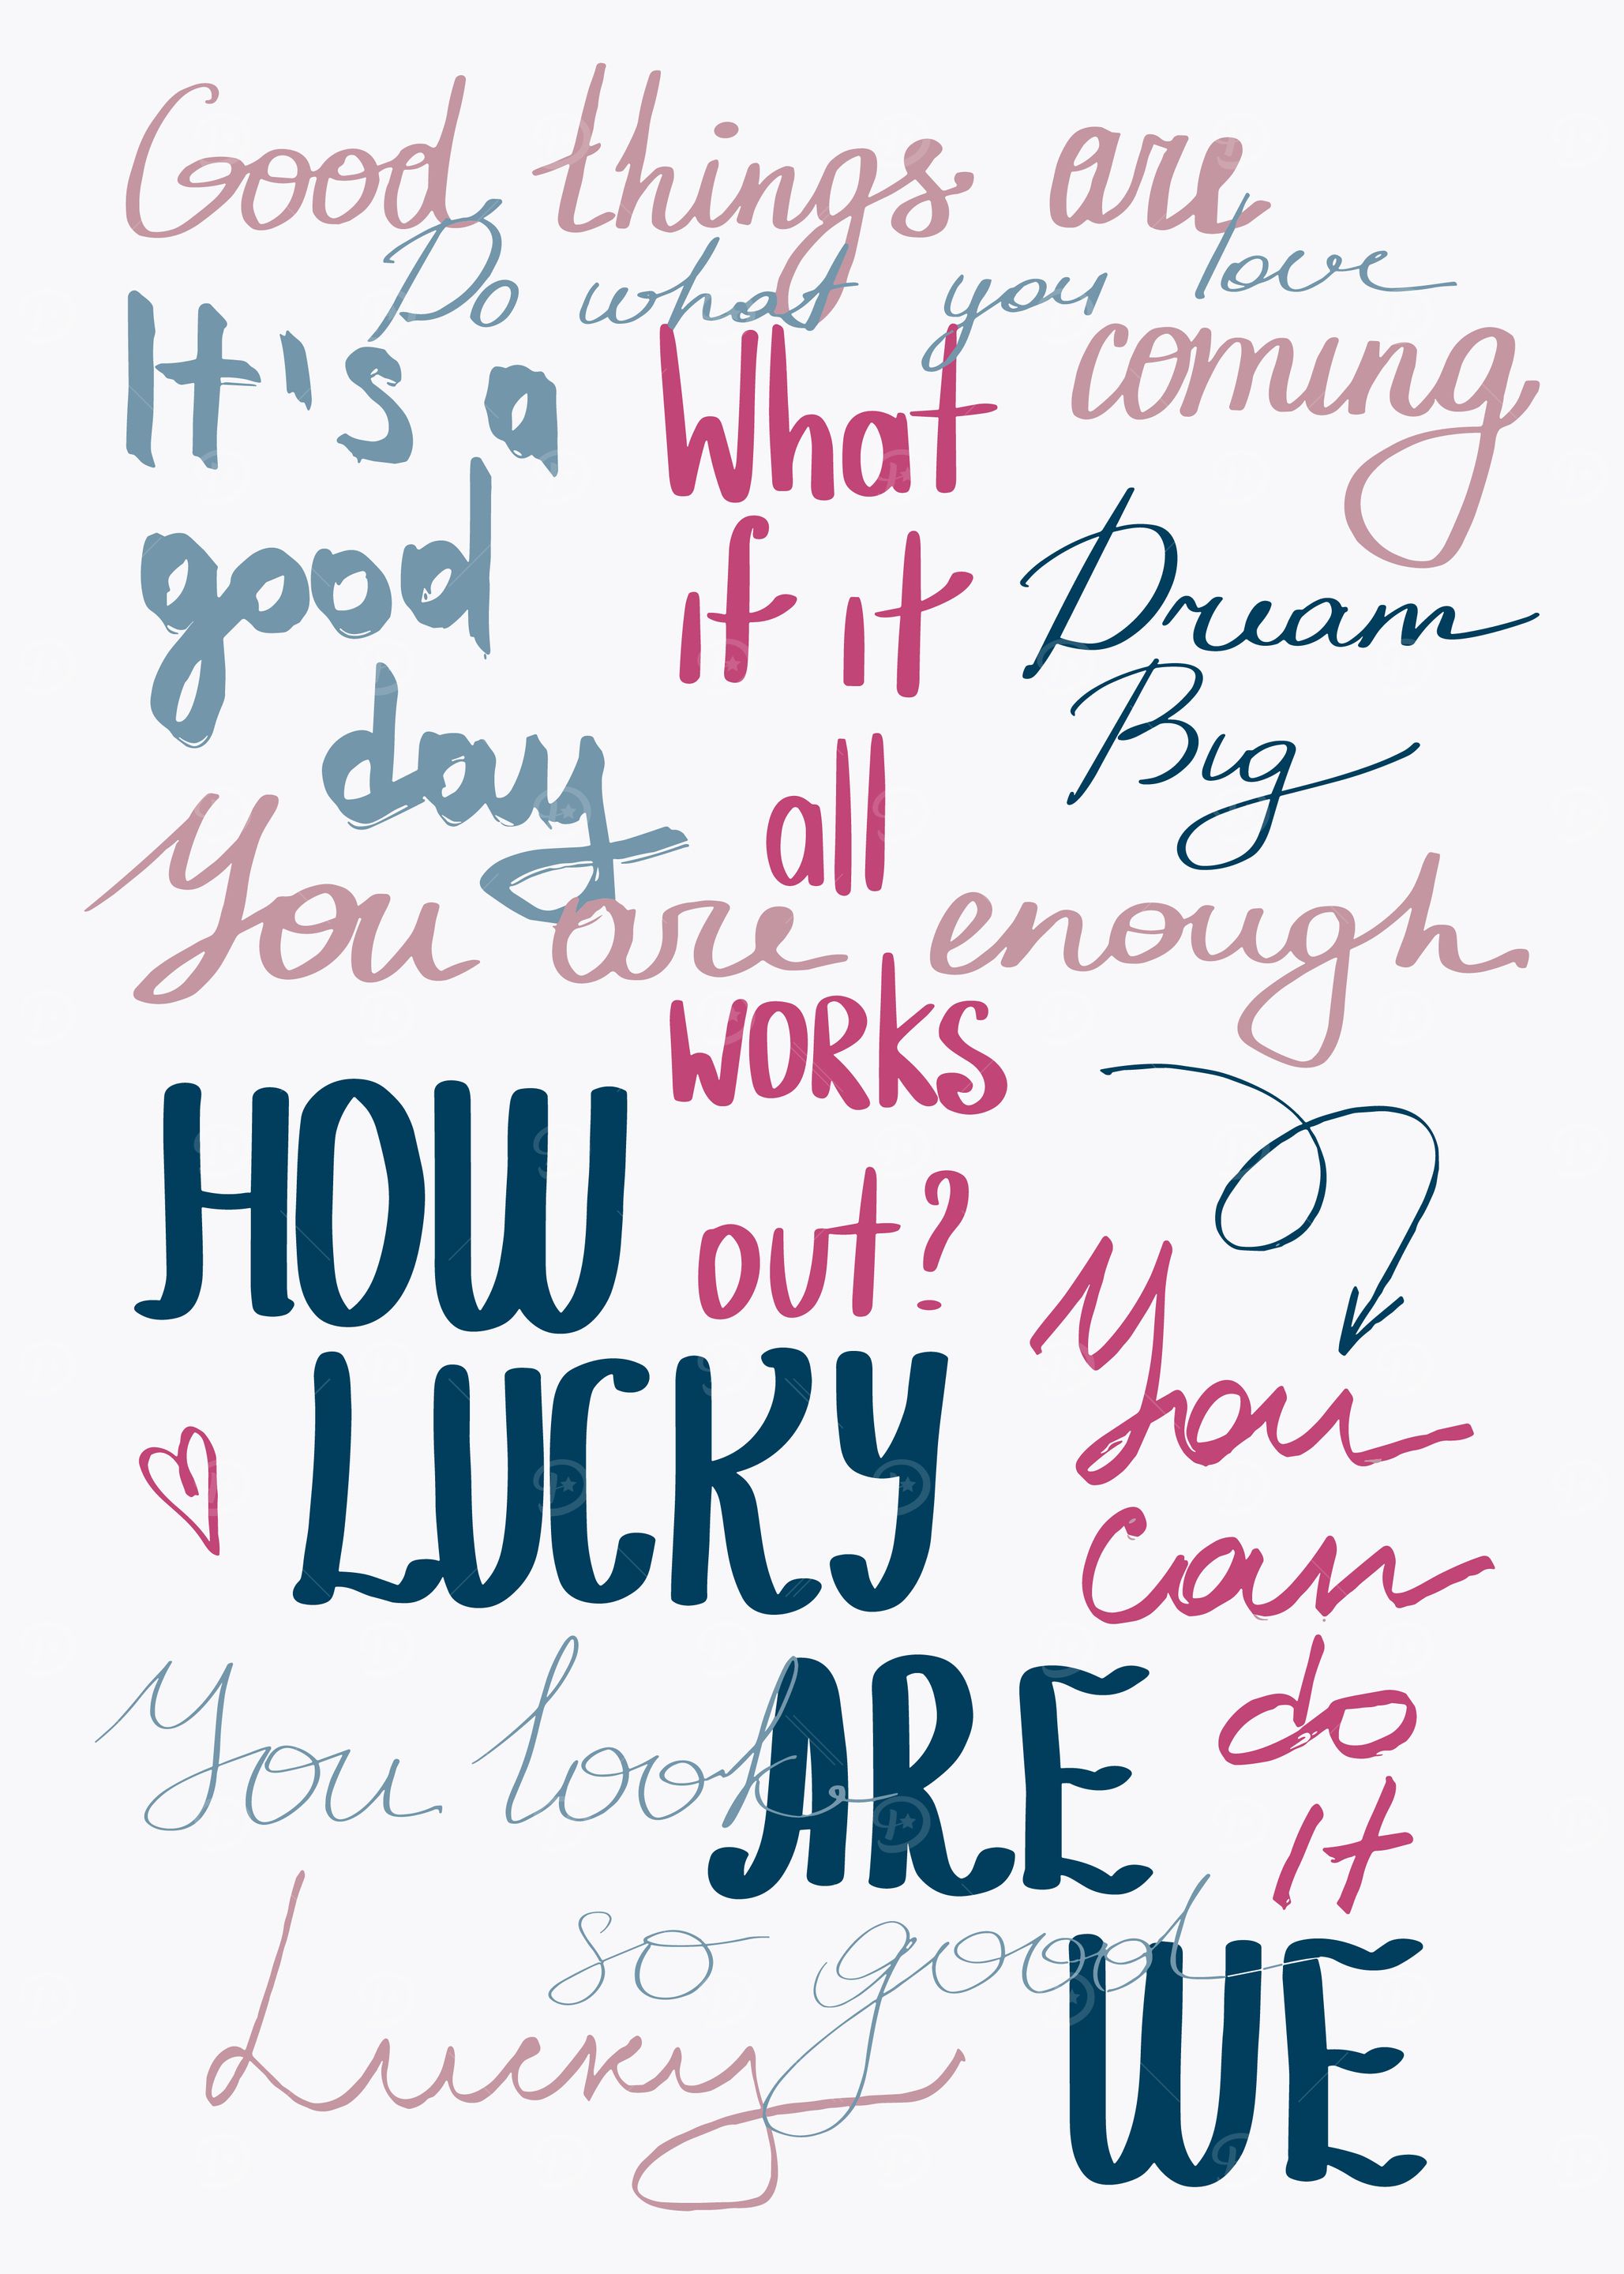 Good things are
coming
Do what you love
It's a
good
day
What
if it
all
WORKS
out?
Dream
Big
You are enough
HOW
LUCKY
ARE
WE
You
Can
do
it
You look
so good
Lucky